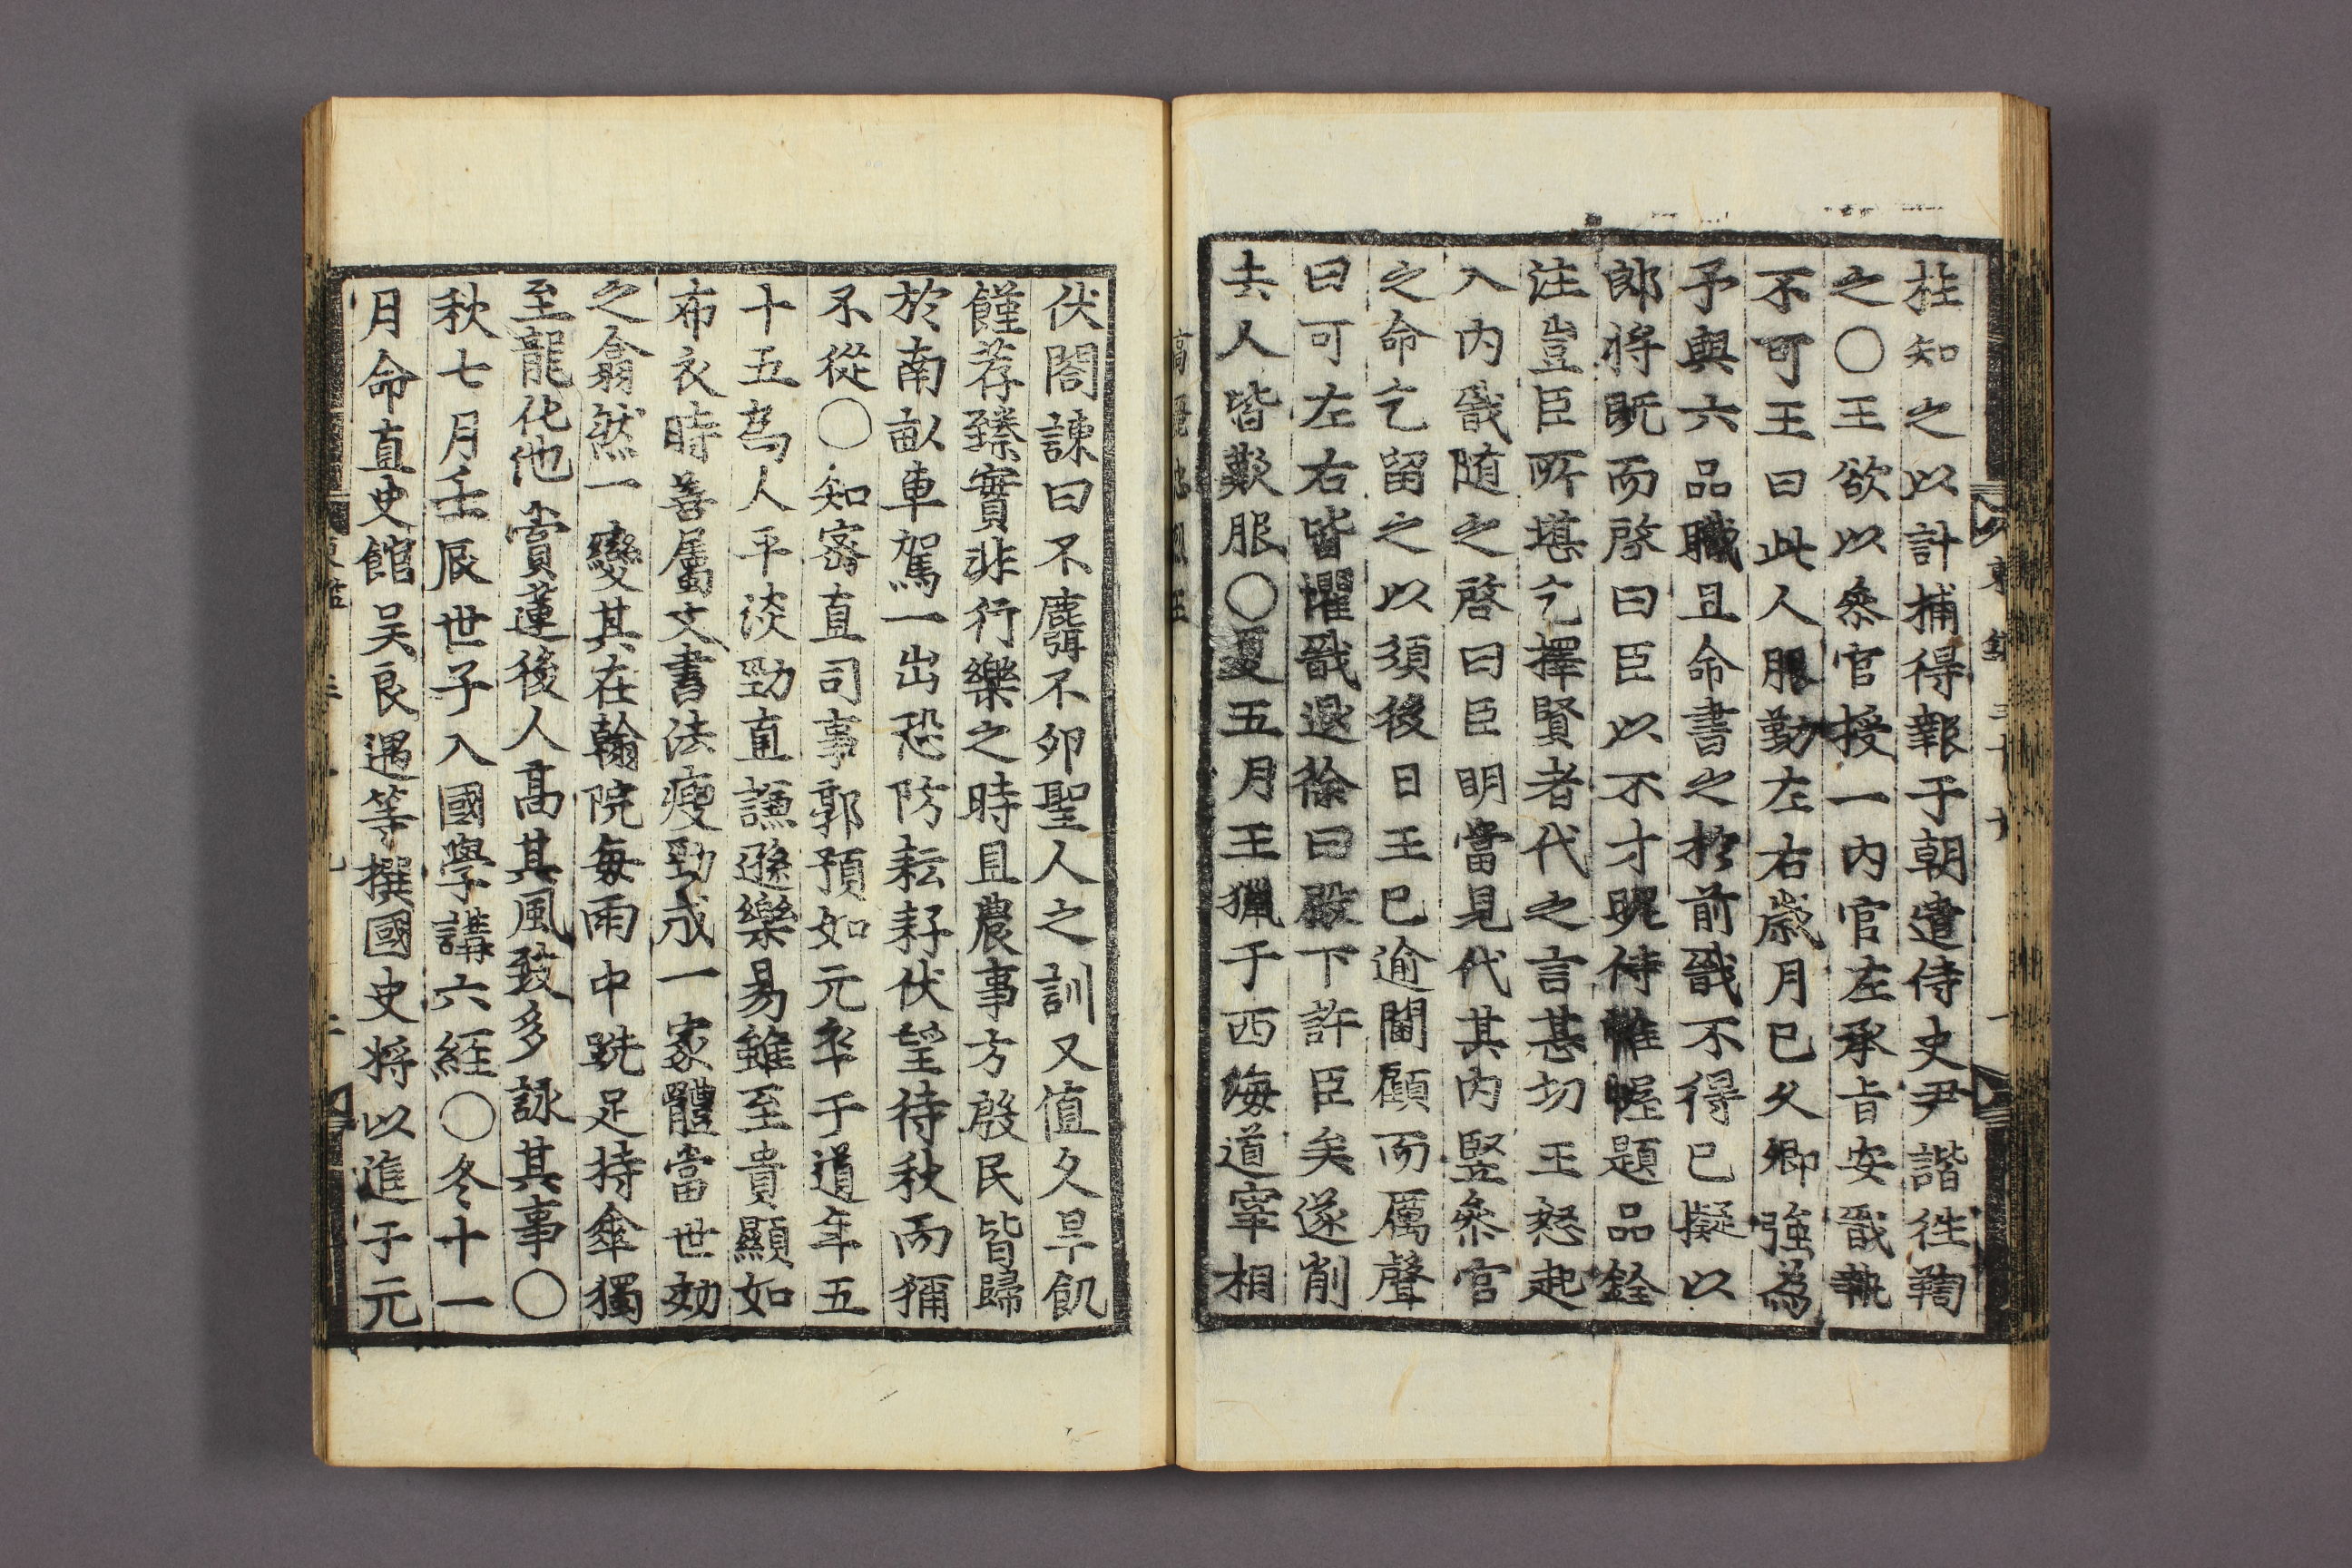 柱知之以計捕得報于朝遣侍史尹諧徃鞫
之〇王欲以叅官授一內官左承旨安戩執
不可王曰此人服勤左右歲月已久卿強爲
予與六品職且命書之於前戩不得已擬以
郎将旣而啓曰臣以不才昵侍帷幄題品銓
注豈臣所堪乞擇賢者代之言甚切王怒起
入內戩随之啓曰臣明當見代其內竪叅官
之命乞留之以須後日王已逾閫顧而厲聲
曰可左右皆懼戩退徐曰殿下許臣矣遂削
去人皆歎服〇夏五月王獵于西海道宰相
伏閤諫曰不麛不卵聖人之訓又值久旱飢
饉荐臻實非行樂之時且農事方殷民皆歸
於南畝車駕一出恐防耘耔伏望待秋而獮
不從〇知密直司事郭預如元卒于道年五
十五爲人平淡勁直謙遜樂易雖至貴顯如
布衣時善屬文書法瘦勁成一家體當世効
之翕然一變其在翰院每雨中跣足持傘獨
至龍化池賞蓮後人高其風致多詠其事〇
秋七月壬辰世子入國學講六經〇冬十一
月命直史館吳良遇等撰國史将以進于元